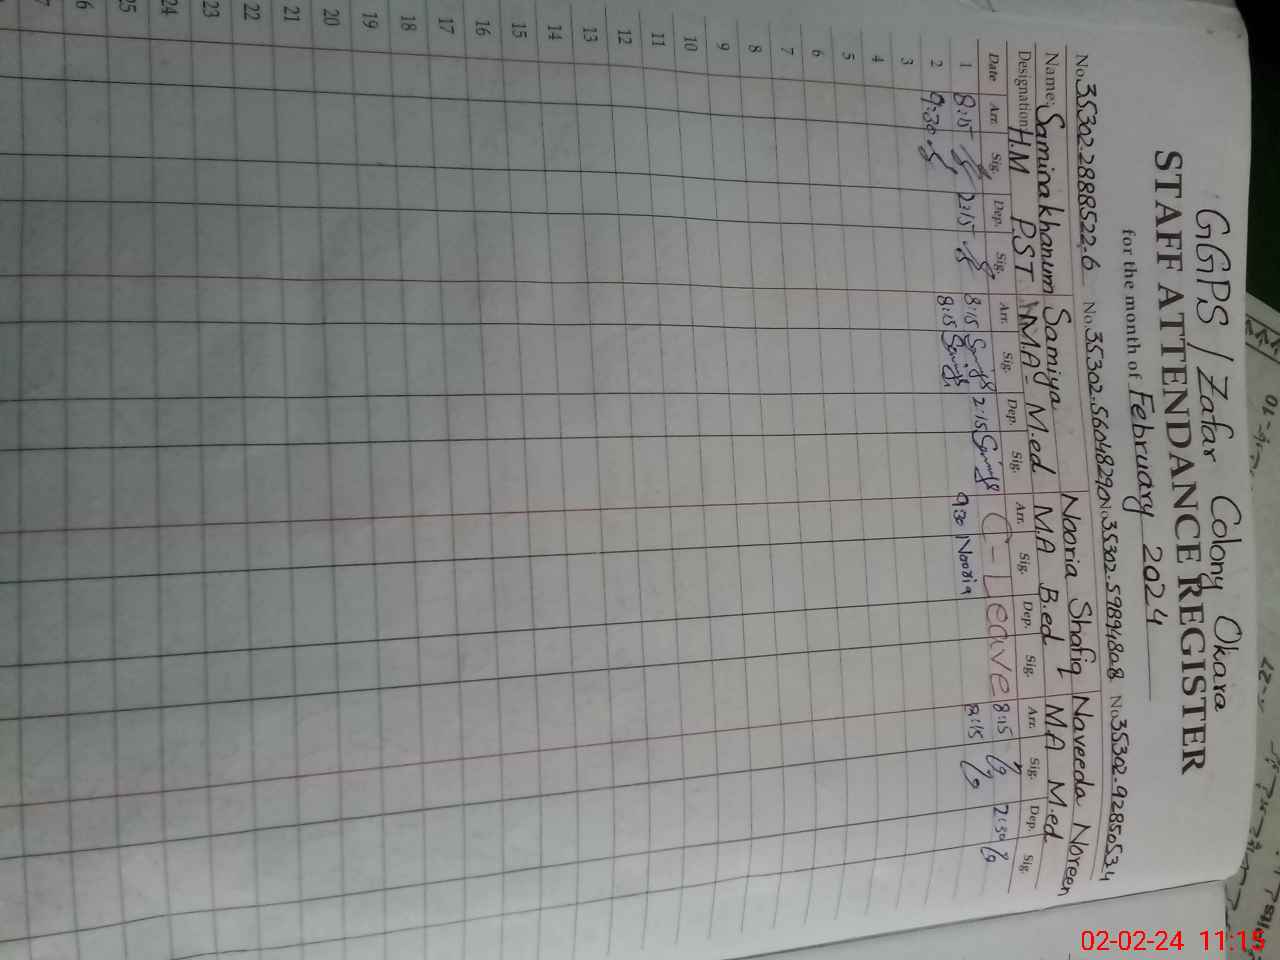 GGPS / Zafar Colony Okara
STAFF ATTENDANCE REGISTER
for the month of February 2024
No. 35302.2888522.6 No. 35302.5604829.0 No. 35302.5989480.8 No. 35302.9285053.4
Name: Samina khanum Samiya Nooria Shafiq Naveeda Noreen
Designation H.M P.S.T M.A - M.ed MA B.ed MA M.ed
Date Arr. Sig. Dep. Sig. Arr. Sig. Dep. Sig. Arr. Sig. Dep. Sig. Arr. Sig. Dep. Sig.
1 8:15 2:15 8:15 2:15 C - Leave 8:15 2:30
2 9:30 8:15 9:30 Nooria 8:15
3
4
5
6
7
8
9
10
11
12
13
14
15
16
17
18
19
20
21
22
23
24
25
6
7
02-02-24 11:15